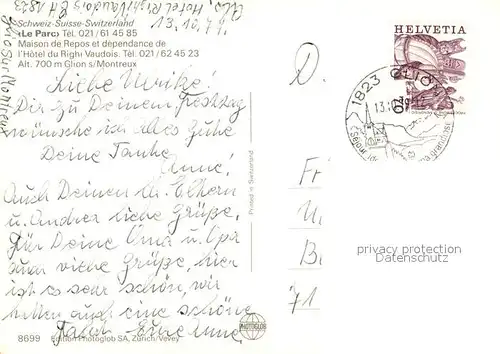 Hotel Righi Vaudois CH 1823
Glion Sur Montreux
13.10.79.
Schweiz-Suisse-Switzerland
«Le Parc» Tél. 021/61 45 85
Maison de Repos et dépendance de
l'Hôtel du Righi Vaudois. Tél. 021/62 45 23
Alt. 700 m Glion s/Montreux
Liebe Ulrike!
Dir zu Deinem Festtag
wünsche ich alles Gute
Deine Tante
Anne!
Auch Deinen lb. Eltern
u. Andrea liebe Grüße,
für Deine Oma u. Opa
auch viele Grüße, hier
ist es sehr schön, wir
hatten auch eine schöne
Fahrt Eure Anne
8699 Edition Photoglob SA, Zürich/Vevey
Printed in Switzerland
PHOTOGLOB
HELVETIA
1823 GLION
D.
Fr
U
B
71
privacy protection
Datenschutz